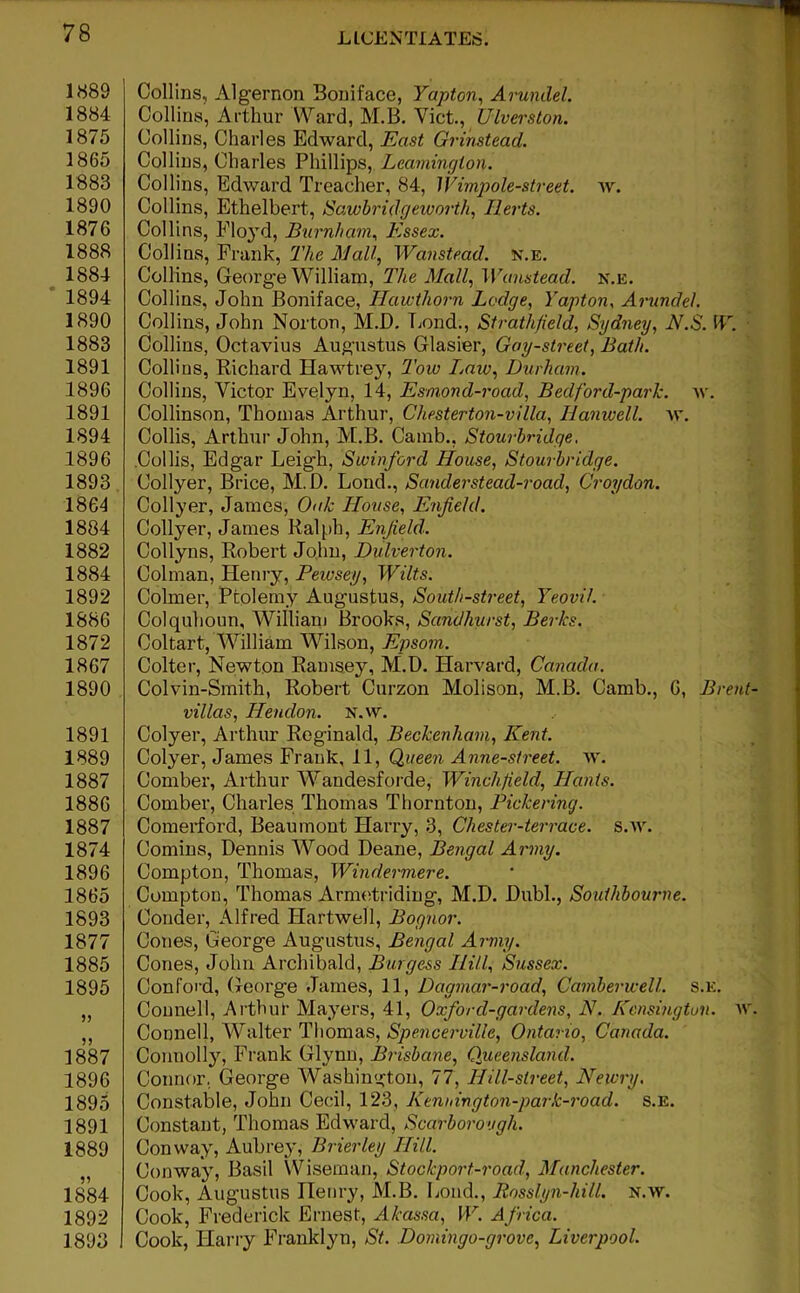 78
LICENTIATES.
1889 Collins, Algernon Boniface, Yapton, Arundel.
1884 Collins, Arthur Ward, M.B. Vict., Ulverston.
1875 Collins, Charles Edward, East Grinstead.
1865 Collins, Charles Phillips, Leamington.
1883 Collins, Edward Treacher, 84, Wimpole-street. w.
1890 Collins, Ethelbert, Sawbridgeworth, Herts.
1876 Collins, Floyd, Burnham, Essex.
1888 Collins, Frank, The Mall, Wanstead. N.E.
1884 Collins, George William, The Mall, Wanstead. N.E.
1894 Collins, John Boniface, Hawthorn Lodge, Yapton, Arundel.
1890 Collins, John Norton, M.D. Lond., Strathfield, Sydney, N.S. W.
1883 Collins, Octavius Augustus Glasier, Gay-street, Bath.
1891 Collins, Richard Hawtrey, Tow Law, Durham.
1896 Collins, Victor Evelyn, 14, Esmond-road, Bedford-park. w.
1891 Collinson, Thomas Arthur, Chesterton-villa, Hanwell. w.
1894 Collis, Arthur John, M.B. Camb., Stourbridge.
1896 Collis, Edgar Leigh, Swinford House, Stourbridge.
1893 Collyer, Brice, M.D. Lond., Sanderstead-road, Croydon.
1864 Collyer, James, Oak House, Enfield.
1884 Collyer, James Ralph, Enfield.
1882 Collyns, Robert John, Dulverton.
1884 Colman, Henry, Pewsey, Wilts.
1892 Colmer, Ptolemy Augustus, South-street, Yeovil.
1886 Colquhoun, William Brooks, Sandhurst, Berks.
1872 Coltart, William Wilson, Epsom.
1867 Colter, Newton Ramsey, M.D. Harvard, Canada.
1890 Colvin-Smith, Robert Curzon Molison, M.B. Camb., 6, Brent-
villas, Hendon. N.W.
1891 Colyer, Arthur Reginald, Beckenham, Kent.
1889 Colyer, James Frank, 11, Queen Anne-street. w.
1887 Comber, Arthur Wandesforde, Winchfield, Hants.
1886 Comber, Charles Thomas Thornton, Pickering.
1887 Comerford, Beaumont Harry, 3, Chester-terrace. S.W.
1874 Comins, Dennis Wood Deane, Bengal Army.
1896 Compton, Thomas, Windermere.
1865 Compton, Thomas Armetriding, M.D. Dubl., Southbourne.
1893 Conder, Alfred Hartwell, Bognor.
1877 Cones, George Augustus, Bengal Army.
1885 Cones, John Archibald, Burgess Hill, Sussex.
1895 Conford, George James, 11, Dagmar-road, Camberwell. S.E.
„ Connell, Arthur Mayers, 41, Oxford-gardens, N. Kensington. w.
„ Connell, Walter Thomas, Spencerville, Ontario, Canada.
1887 Connolly, Frank Glynn, Brisbane, Queensland.
1896 Connor, George Washington, 77, Hill-street, Newry.
1895 Constable, John Cecil, 123, Kennington-park-road. S.E.
1891 Constant, Thomas Edward, Scarborough.
1889 Conway, Aubrey, Brierley Hill.
„ Conway, Basil Wiseman, Stockport-road, Manchester.
1884 Cook, Augustus Henry, M.B. Lond., Rosslyn-hill. N.W.
1892 Cook, Frederick Ernest, Akassa, W. Africa.
1893 Cook, Harry Franklyn, St. Domingo-grove, Liverpool.